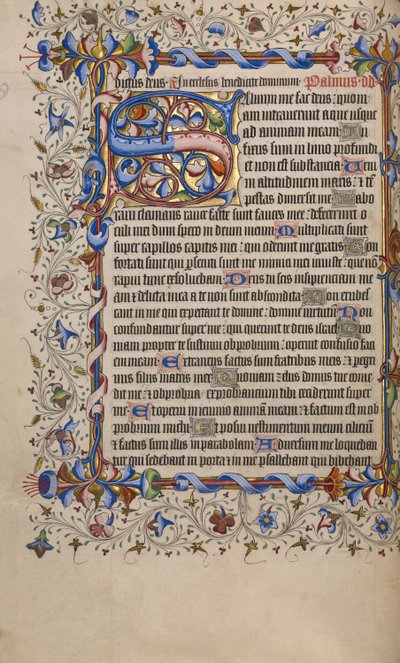 dictus deus. In ecclesiis benedicite dominum. Psalmus dd
Salvum me fac deus: quoni
am intraverunt aque usque
ad animam meam. In
fixus sum in limo profundi
et non est substantia. Veni
in altitudinem maris: & te
pestas dimersit me. Labo
ravi clamans rauce facte sunt fauces mee: defecerunt o
culi mei dum spero in deum meum. Multiplicati sunt
super capillos capitis mei: qui oderunt me gratis. Con
fortati sunt qui persecuti sunt me inimici mei iniuste: que non
rapui tunc exsolvebam. Deus tu scis insipienciam me
am & delicta mea a te non sunt abscondita. Non erubes
cant in me qui expectant te domine: domine virtutum. Non
confundantur super me: qui querunt te deus israel. Quo
niam propter te sustinui obprobrium: operuit confusio faci
em meam. Extraneus factus sum fratribus meis: & pereg
nus filiis matris mee. Quoniam zelus domus tue come
dit me: & obprobria exprobrantium tibi ceciderunt super
me. Et operui in ieiunio animam meam: & factum est in ob
probrium michi. Et posui vestimentum meum cilicium
& factus sum illis in parabolam. Adversum me loqueban
tur qui sedebant in porta: & in me psallebant qui bibebant